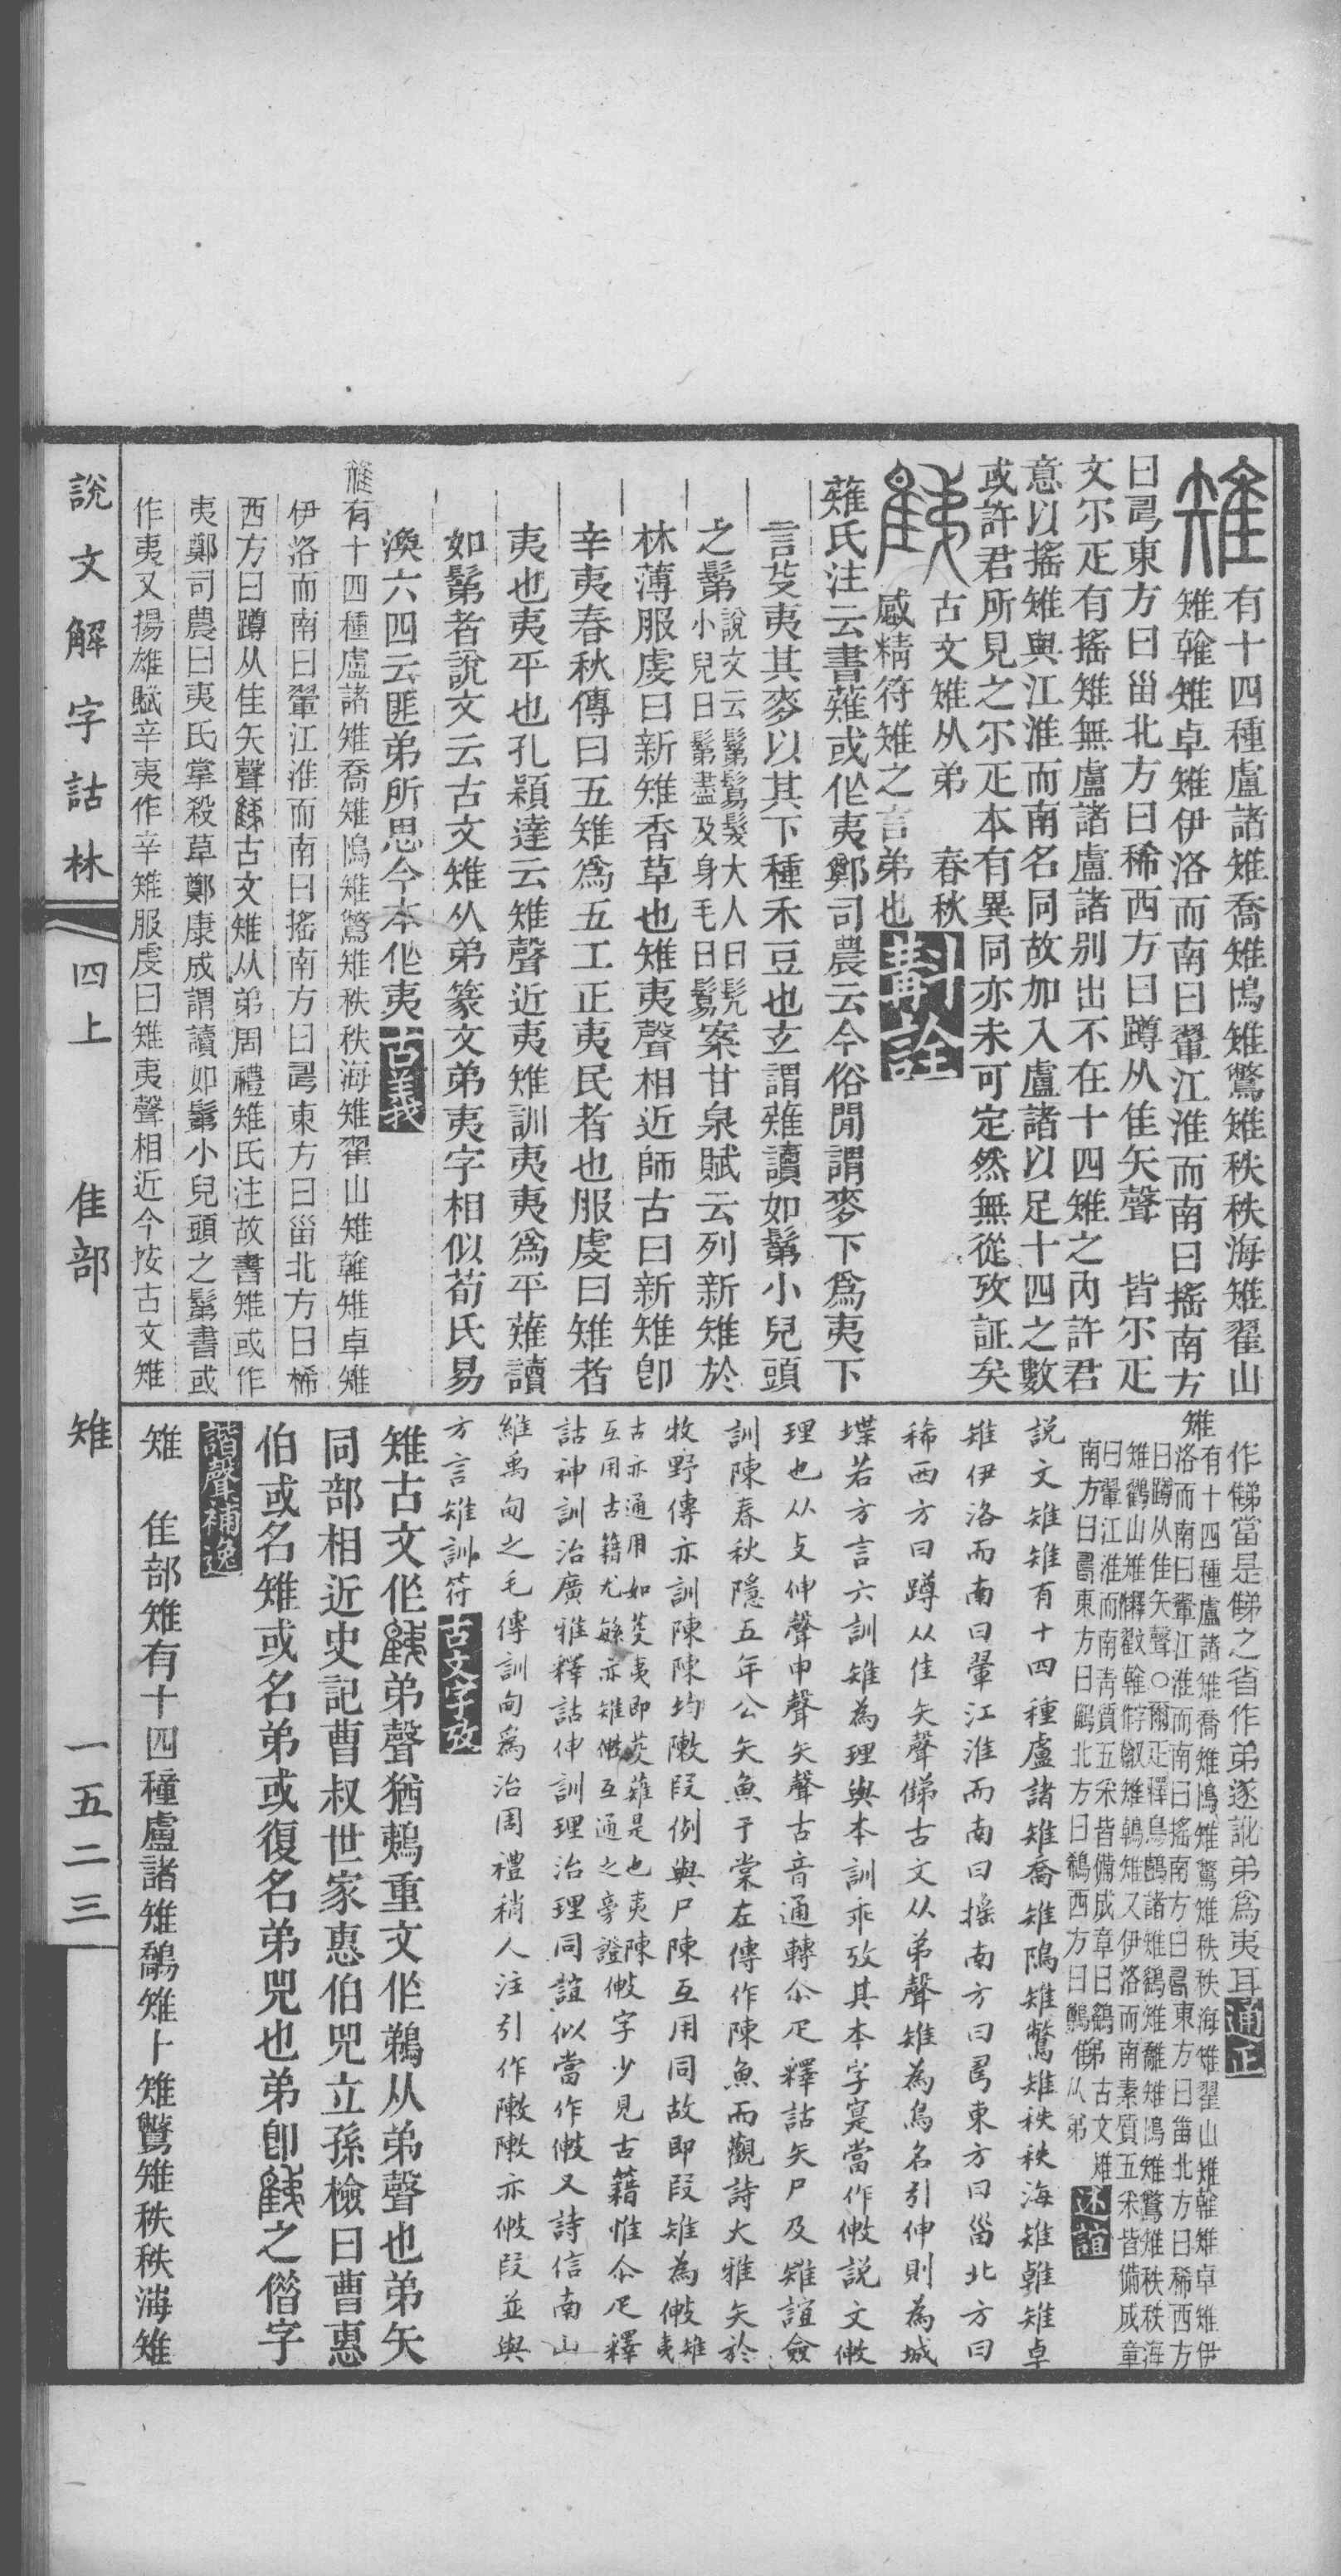 有十四種盧諸雉喬雉鳪雉鷩雉秩秩海雉翟山
雉雗雉卓雉伊洛而南曰翬江淮而南曰搖南方
曰𠷎東方曰甾北方曰稀西方曰蹲从隹矢聲　皆尔疋
文尔疋有搖雉無盧諸盧諸別出不在十四雉之內許君
意以搖雉與江淮而南名同故加入盧諸以足十四之數
或許君所見之尔疋本有異同亦未可定然無從攷証矣
古文雉从弟　春秋
感精符雉之言弟也 斠詮
薙氏注云書薙或作夷鄭司農云今俗閒謂麥下爲夷下
言芟夷其麥以其下種禾豆也玄謂薙讀如鬀小兒頭
之鬀說文云鬀鬄髮大人曰髡小兒曰鬀盡及身毛曰鬄案甘泉賦云列新雉於
林薄服虔曰新雉香草也雉夷聲相近師古曰新雉卽
辛夷春秋傳曰五雉爲五工正夷民者也服虔曰雉者
夷也夷平也孔穎達云雉聲近夷雉訓夷夷爲平薙讀
如鬀者說文云古文雉从弟篆文弟夷字相似荀氏易
渙六四云匪弟所思今本作夷 古義
雉有十四種盧諸雉喬雉鳪雉鷩雉秩秩海雉翟山雉雗雉卓雉
伊洛而南曰翬江淮而南曰搖南方曰𠷎東方曰甾北方曰稀
西方曰蹲从隹矢聲䨑古文雉从弟周禮雉氏注故書雉或作
夷鄭司農曰夷氏掌殺草鄭康成謂讀如鬀小兒頭之鬀書或
作夷又揚雄賦辛夷作辛雉服虔曰雉夷聲相近今按古文雉
作䨑當是䨑之省作弟遂訛弟爲夷耳 通正
雉有十四種盧諸雉喬雉鳪雉鷩雉秩秩海雉翟山雉雗雉卓雉伊
洛而南曰翬江淮而南曰搖南方曰𠷎東方曰甾北方曰稀西方
曰蹲从隹矢聲○爾疋釋鳥鸕諸雉鷂雉鳪雉鷩雉秩秩海
雉鸐山雉雗雉鵫雉又伊洛而南素質五采皆備成章
曰翬江淮而南靑質五采皆備成章曰鷂弟古文雉
南方曰𠷎東方曰鶅北方曰鵗西方曰鷷从弟 述誼
說文雉雉有十四種盧諸雉喬雉鳪雉鷩雉秩秩海雉雗雉卓
雉伊洛而南曰翬江淮而南曰搖南方曰𠷎東方曰甾北方曰
稀西方曰蹲从隹矢聲䨑古文从弟聲雉為鳥名引伸則為城
堞若方言六訓雉為理與本訓乖攷其本字寔當作㪆說文㪆
理也从攴伸聲申聲矢聲古音通轉尒疋釋詁矢尸及雉誼僉
訓陳春秋隱五年公矢魚于棠左傳作陳魚而觀詩大雅矢於
牧野傳亦訓陳陳均敶叚例與尸陳互用同故即叚雉為㪆雉夷
古亦通用如芟夷即芟薙是也夷陳互用古籍尤緐亦雉㪆互通之旁證㪆字少見古籍惟尒疋釋
詁神訓治廣雅釋詁伸訓理治理同誼似當作㪆又詩信南山
維禹甸之毛傳訓甸爲治周禮稍人注引作敶敶亦㪆叚並與
方言雉訓符 古文字攷
雉古文作弟聲猶鶇重文作鵜从弟聲也弟矢
同部相近史記曹叔世家惠伯兕立孫檢曰曹惠
伯或名雉或名弟或復名弟兕也弟卽之僭字
諧聲補逸
雉　隹部雉有十四種盧諸雉鷮雉卜雉鷩雉秩秩海雉
說文解字詁林 四上 隹部 雉 一五二三